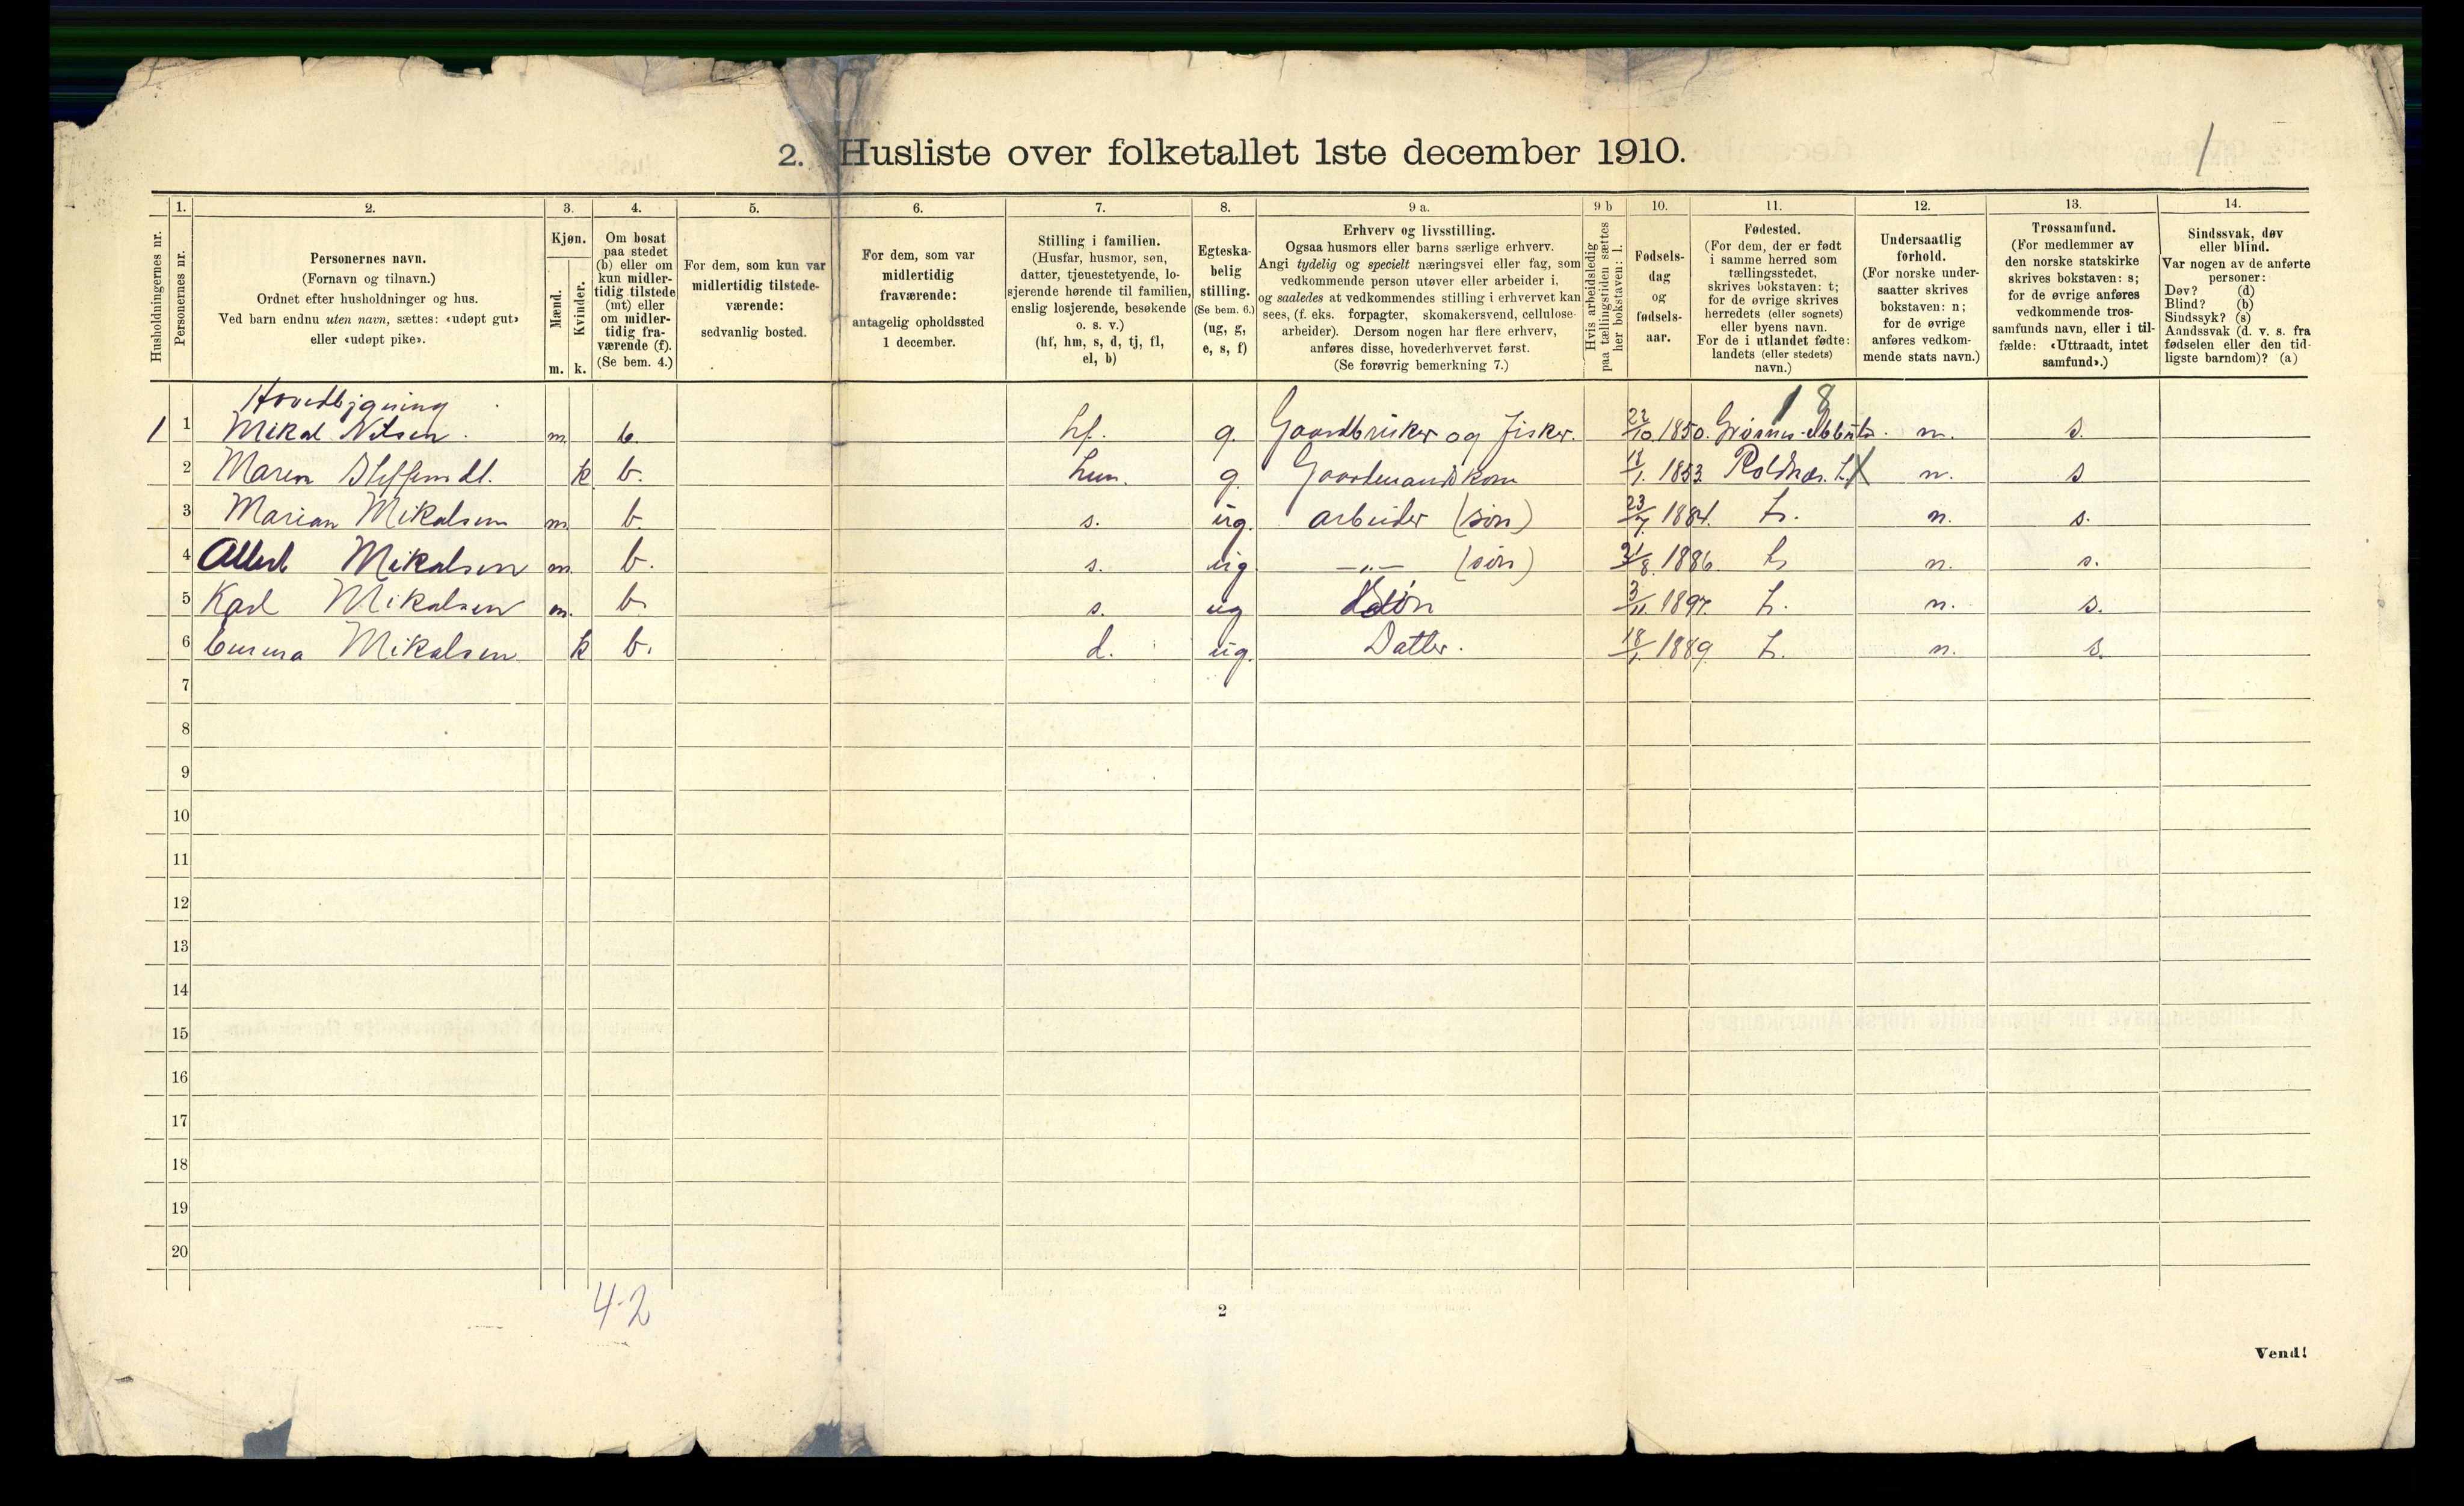 2. Husliste over folketallet 1ste december 1910.
1
Husholdningernes nr.
1. Personernes nr.
2. Personernes navn.
(Fornavn og tilnavn.)
Ordnet efter husholdninger og hus.
Ved barn endnu uten navn, sættes: «udøpt gut»
eller «udøpt pike».
3. Kjøn.
Mænd. m.
Kvinder. k.
4. Om bosat
paa stedet
(b) eller om
kun midler-
tidig tilstede
(mt) eller
om midler-
tidig fra-
værende (f).
(Se bem. 4.)
5. For dem, som kun var
midlertidig tilstede-
værende:
sedvanlig bosted.
6. For dem, som var
midlertidig
fraværende:
antagelig opholdssted
1 december.
7. Stilling i familien.
(Husfar, husmor, søn,
datter, tjenestetyende, lo-
sjerende hørende til familien,
enslig losjerende, besøkende
o. s. v.)
(hf, hm, s, d, tj, fl,
el, b)
8. Egteska-
belig
stilling.
(Se bem. 6.)
(ug, g,
e, s, f)
9 a. Erhverv og livsstilling.
Ogsaa husmors eller barns særlige erhverv.
Angi tydelig og specielt næringsvei eller fag, som
vedkommende person utøver eller arbeider i,
og saaledes at vedkommendes stilling i erhvervet kan
sees, (f. eks. forpagter, skomakersvend, cellulose-
arbeider). Dersom nogen har flere erhverv,
anføres disse, hovederhvervet først.
(Se forøvrig bemerkning 7.)
9 b Hvis arbeidsledig
paa tællingstiden sættes
her bokstaven: l.
10. Fødsels-
dag
og
fødsels-
aar.
11. Fødested.
(For dem, der er født
i samme herred som
tællingsstedet,
skrives bokstaven: t;
for de øvrige skrives
herredets (eller sognets)
eller byens navn.
For de i utlandet fødte:
landets (eller stedets)
navn.)
12. Undersaatlig
forhold.
(For norske under-
saatter skrives
bokstaven: n;
for de øvrige
anføres vedkom-
mende stats navn.)
13. Trossamfund.
(For medlemmer av
den norske statskirke
skrives bokstaven: s;
for de øvrige anføres
vedkommende tros-
samfunds navn, eller i til-
fælde: «Uttraadt, intet
samfund».)
14. Sindssvak, døv
eller blind.
Var nogen av de anførte
personer:
Døv? (d)
Blind? (b)
Sindssyk? (s)
Aandssvak (d. v. s. fra
fødselen eller den tid-
ligste barndom)? (a)
Hovedbygning 18
1 1 Mikal Nilsen. m. b. hf. g. Gaardbruker og fisker. 22/10 1850. n. s.
2 Maren Steffensdt. k b. hm. g. Gaardmandskone 18/1. 1853 n. s
3 Marian Mikalsen m b. s. ug. arbeider (søn) 23/7. 1884. t. n. s.
4 Mikalsen m. b. s. ug —„— (søn) 31/8. 1886. t n. s.
5 Karl Mikalsen m. b. s. ug Søn 3/11. 1897. t. n. s.
6 Emma Mikalsen k b. d. ug. Datter. 18/1. 1889. t. n. s.
7
8
9
10
11
12
13
14
15
16
17
18
19
20
4-2
2
Vend!